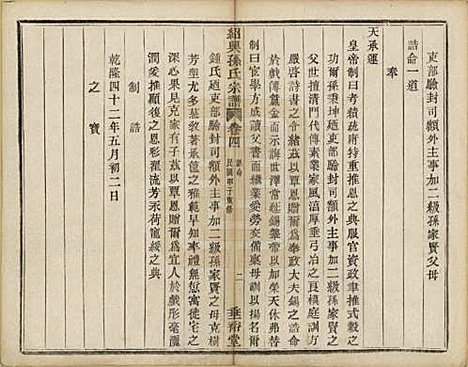 誥命一道
吏部驗封司額外主事加二級孫家賢父母
奉
天承運
皇帝制曰考績疏庸特重推恩之典服官資政聿推式穀之
功爾孫秉坤迺吏部驗封司額外主事加二級孫家賢之
父世擅清門代傳素業家風淳厚垂弓冶之良模庭訓方
嚴啓詩書之令緒茲以覃恩贈爾為奉政大夫錫之誥命
於戲薄籯金而示訓世澤常延錫綸綍以加榮天休弗替
制曰官學方成讀父書而纘業愛勞交備稟母訓以揚休爾
鍾氏迺吏部驗封司額外主事加二級孫家賢之母克樹
芳型尤多慈教著承筐之雅範早知奉禮無愆寓徙宅之
深心果見克家有子茲以覃恩贈爾為宜人於戲彤毫瀜
潤愛推顧復之恩彤管流芳丕荷龍綏之典
制誥
乾隆四十二年五月初二日
之寶
紹興孫氏宗譜
卷四
誥命
民國甲子重修
二
垂裕堂